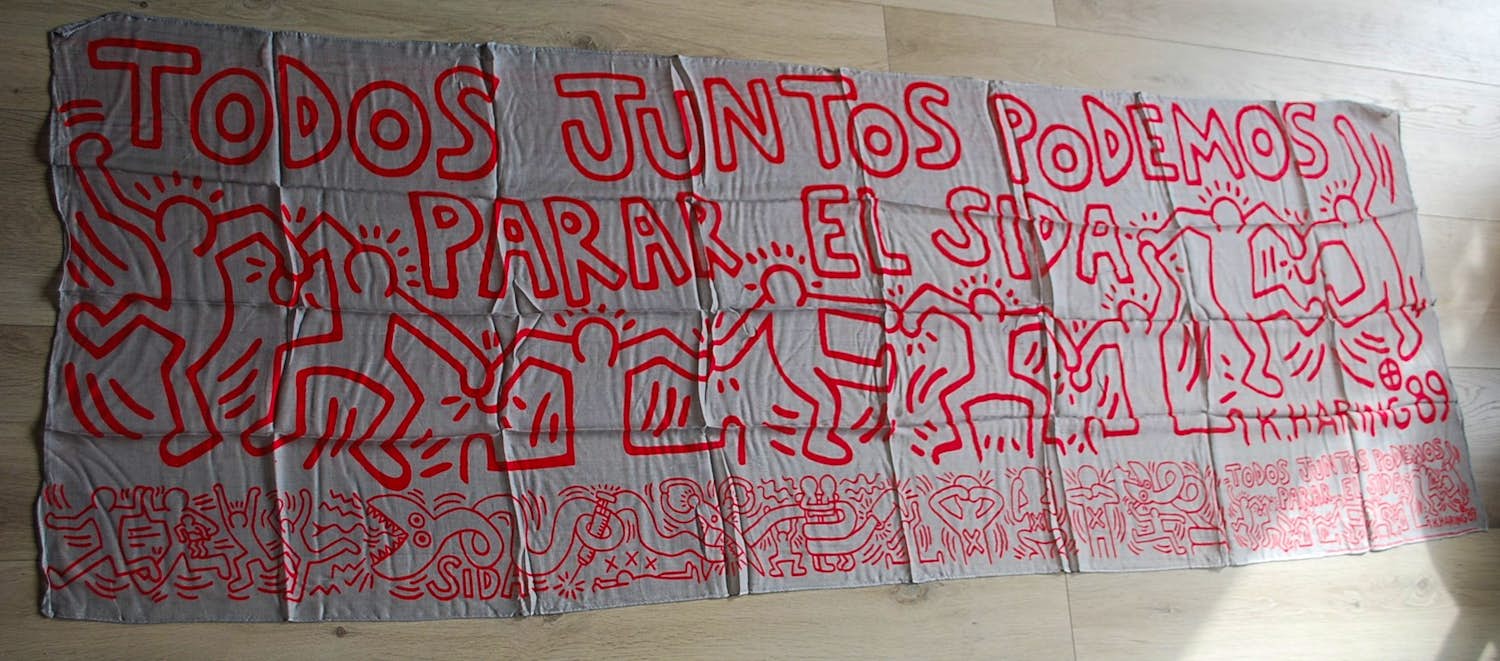 TODOS JUNTOS PODEMOS
PARAR EL SIDA
K. HARING 89
SIDA
TODOS JUNTOS PODEMOS
PARAR EL SIDA
K. HARING 89